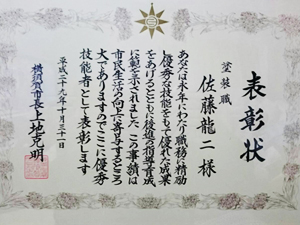 表彰状
塗装職
佐藤龍二 様
あなたは永年にわたり職務に精励
し優秀な技能をもって優れた成果
をあげるとともに後進の指導育成
に範を示されましたこの事績は
市民生活の向上に寄与するところ
大でありますのでここに優秀
技能者として表彰します
平成二十九年十月三十一日
横須賀市長 上地克明